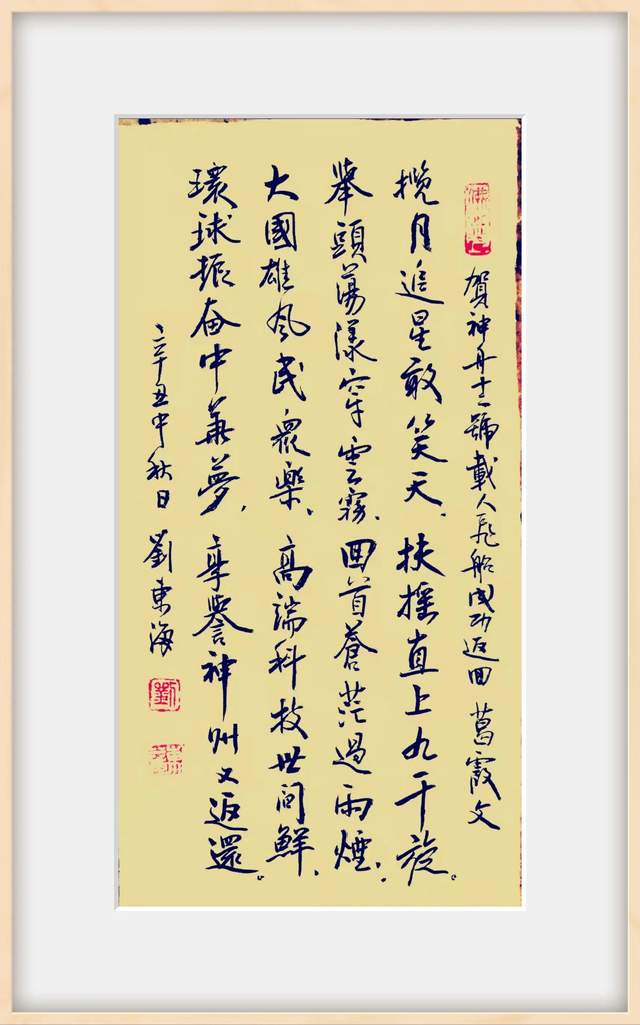 賀神舟十二號載人飛船成功返回 葛霞文
攬月追星敢笑天，扶摇直上九千旋。
舉頭蕩漾穿雲霧，回首蒼茫過雨煙，
大國雄风民眾樂，高端科技世间鮮，
環球振奋中華夢，享譽神州又返還。
辛丑中秋日 劉東海
劉